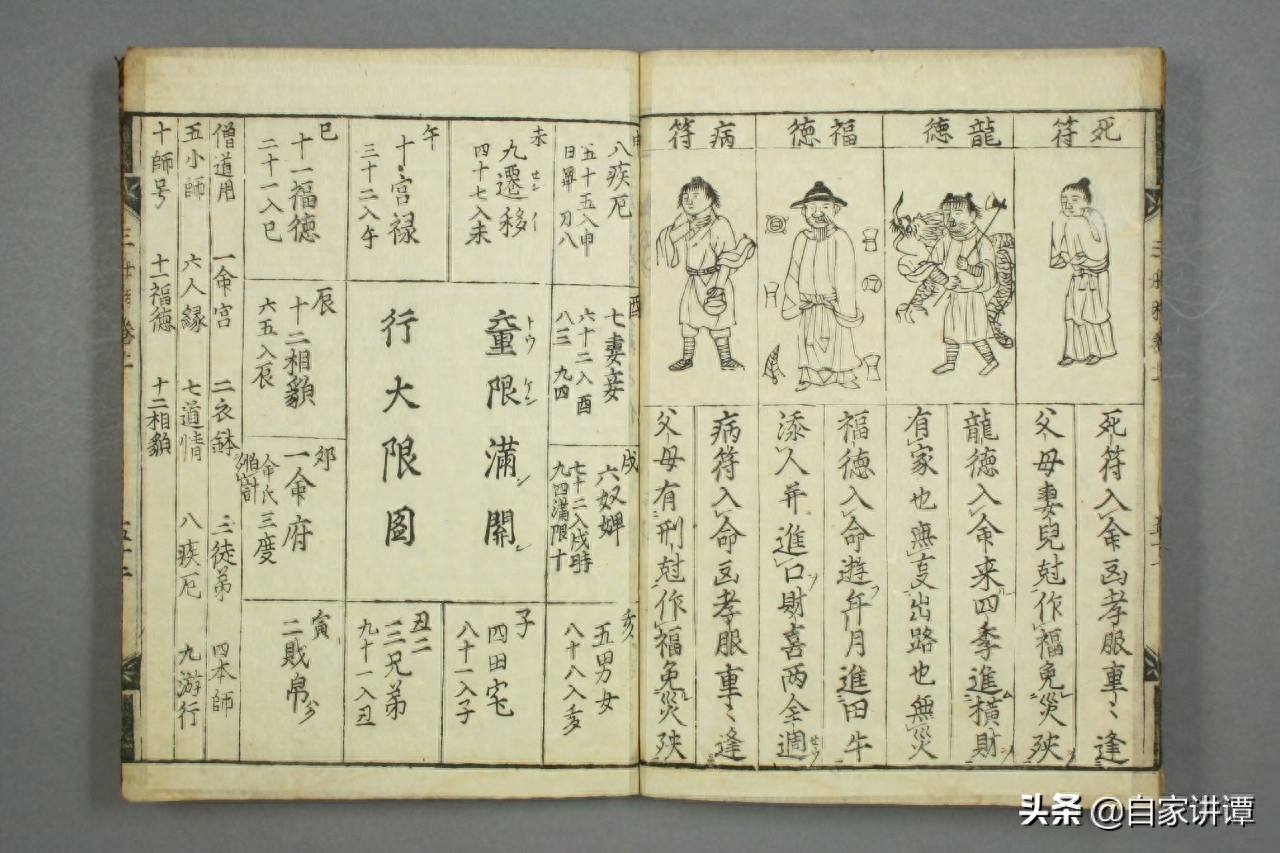 死符
龍德
福德
病符
死符入命凶孝服重〻逢
父母妻兒尅作福免災殃
龍德入命来四季進橫財
有家也無㐫出路也無災
福德入命遊年月進田牛
添人并進口財喜两全週
病符入命凶孝服重〻逢
父母有刑尅作福免災殃
申
八疾厄
五十五入申
未
九遷移
四十七入未
午
十宮禄
三十二入午
巳
十一福德
二十一入巳
酉
七妻妾
六十二入酉
八三 九四
童限滿關
行大限图
辰
十二相貌
六五入辰
戌
六奴婢
七十二入戌時
九四滿限十
卯
一命府
三度
亥
五男女
八十八入亥
子
四田宅
八十一入子
丑
三兄弟
九十一入丑
寅
二財帛
僧道用 一命宮 二衣鉢 三徒弟 四本師
五小師 六人緣 七道情 八疾厄 九游行
十師号 十一福德 十二相貌
头条 @自家讲谭